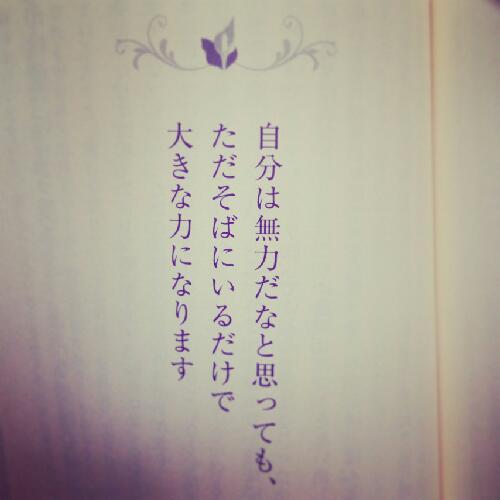 自分は無力だなと思っても、
ただそばにいるだけで
大きな力になります